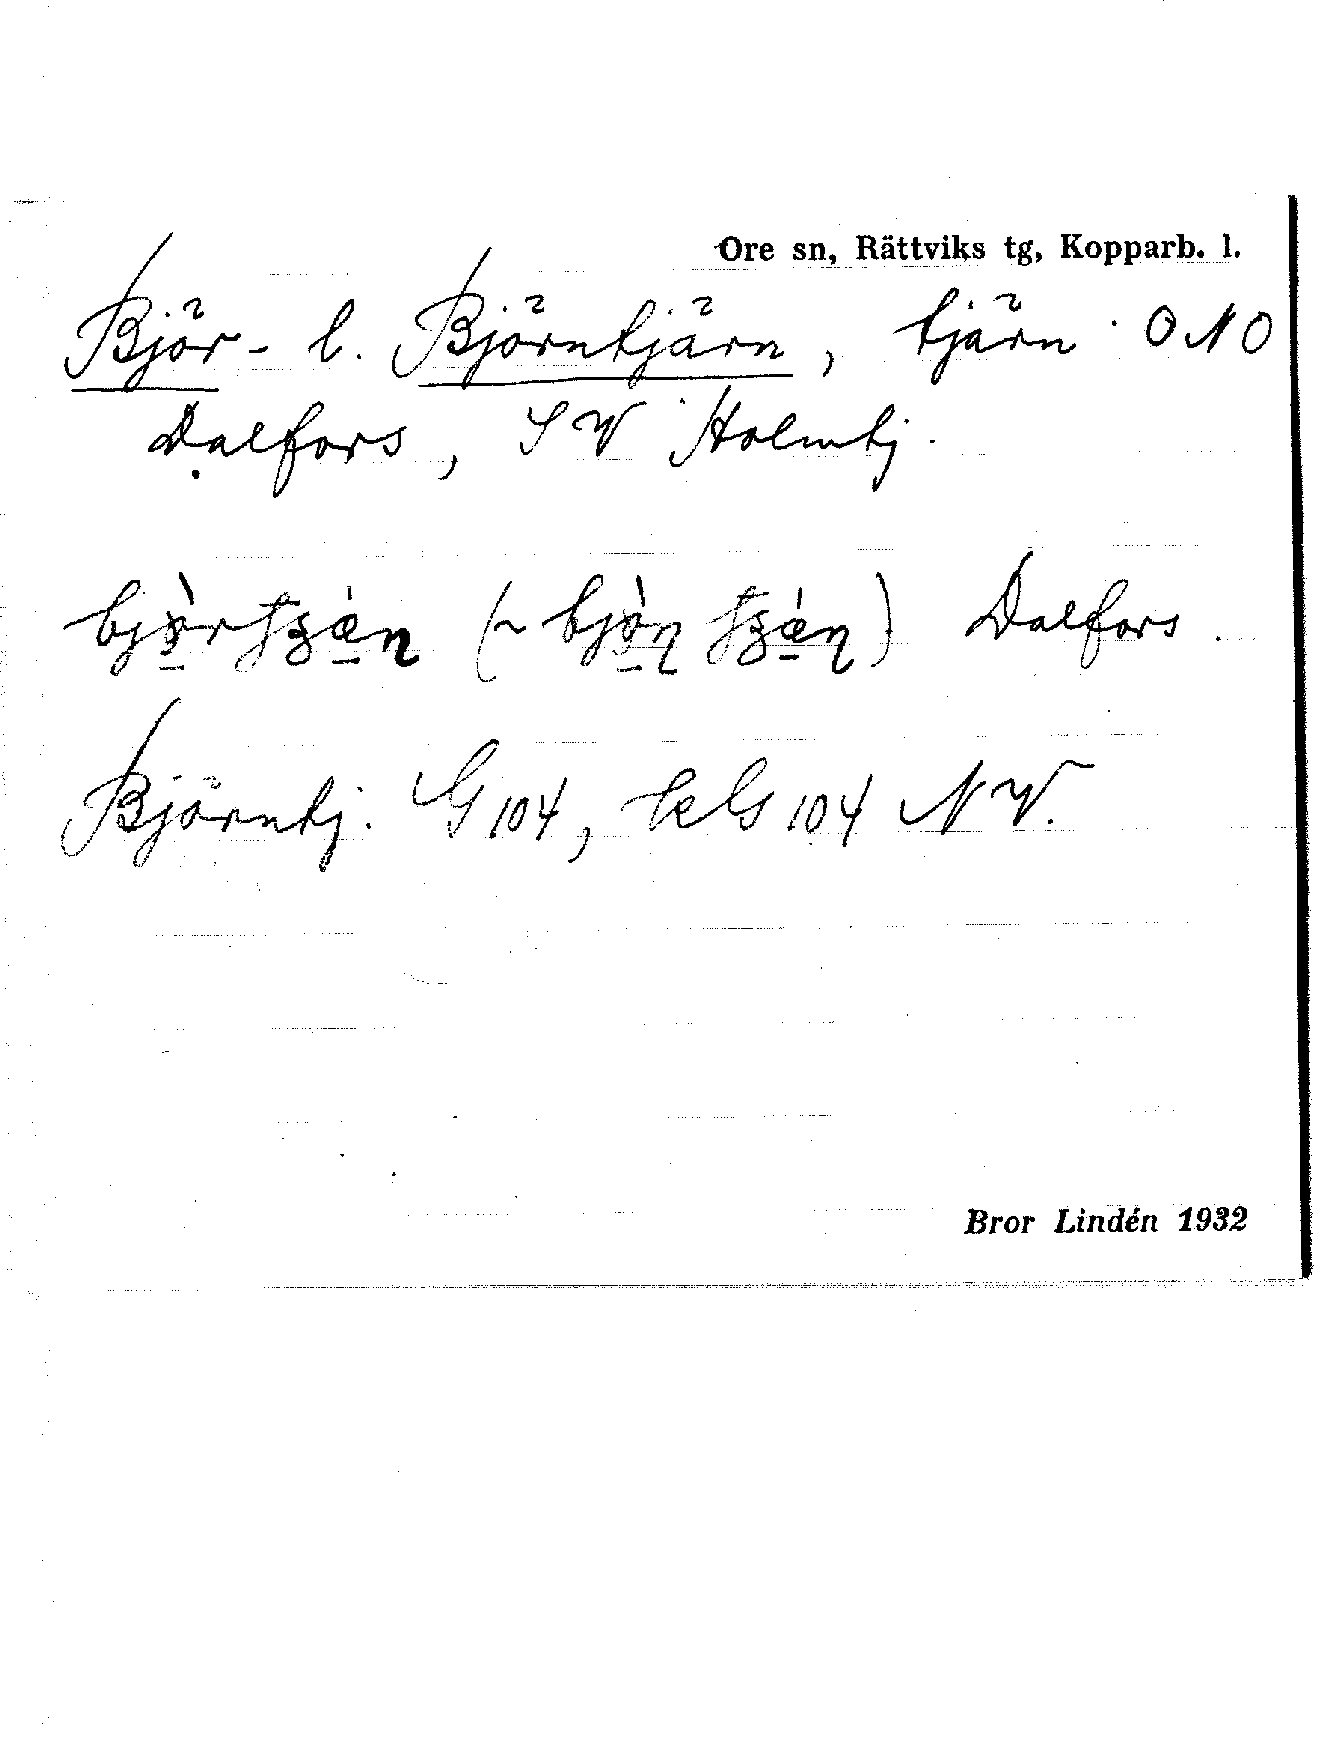 Ore sn, Rättviks tg, Kopparb. l.
Björ- l. Björntjärn, tjärn ONO
Dalfors, SV Holmtj.
Dalfors.
Björntj. G 104, ekG 104 NV.
Bror Lindén 1932